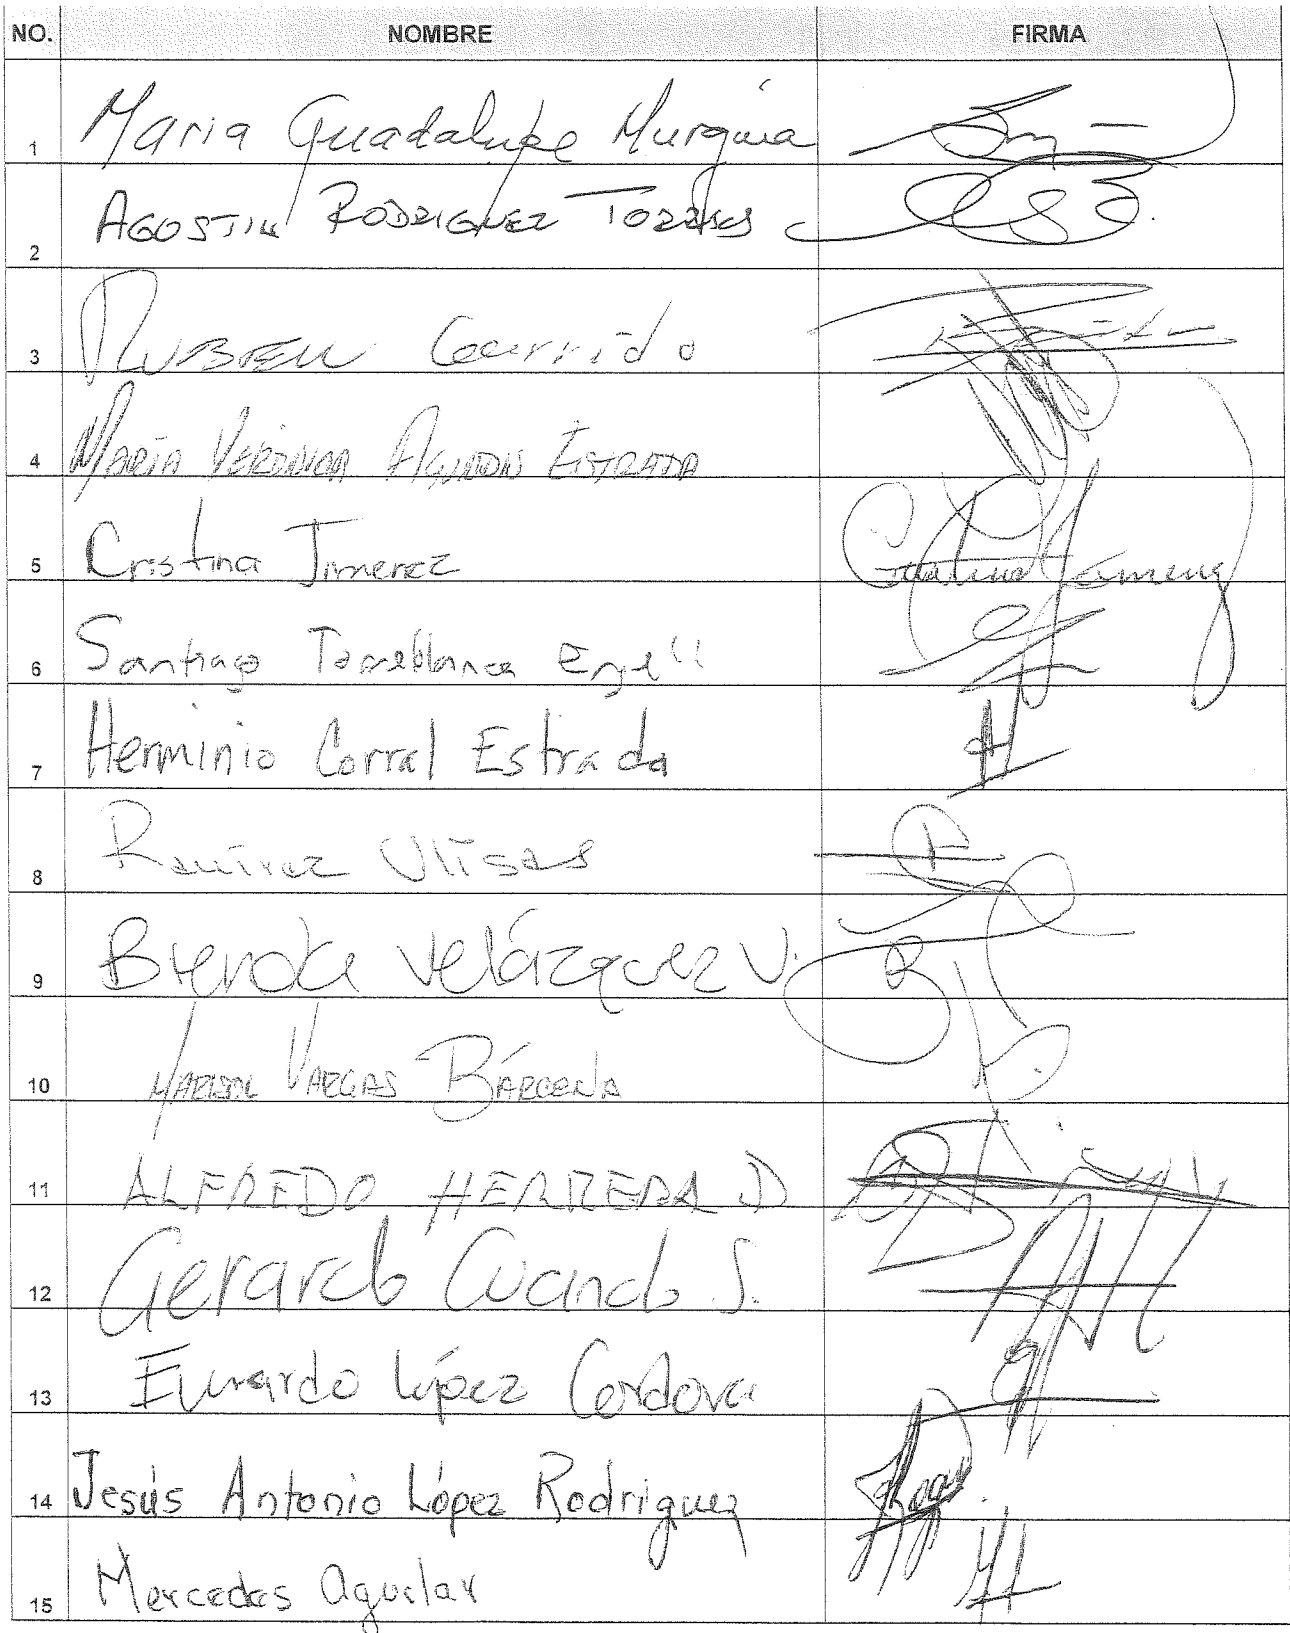 NO. NOMBRE FIRMA
1 Maria Guadalupe Murguia
2 AGOSTIN RODRIGUEZ TORRES
3 RUBEN Garrido
4 MARÍA VERÓNICA AGUNDIS ESTRADA
5 Cristina Jimenez Cristina Jimenez
6 Santiago Torreblanca Engell
7 Herminio Corral Estrada
8 Ramírez Ulises
9 Brenda Velázquez V.
10 MARISOL VARGAS BÁRCENA
11 ALFREDO HERRERA D
12 Gerardo Cuanalo S.
13 Evaristo López Cordova
14 Jesús Antonio López Rodriguez
15 Mercedes Aguilar